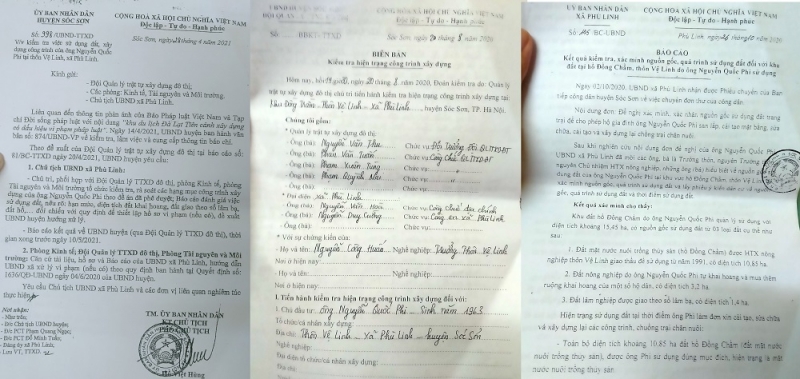 ỦY BAN NHÂN DÂN
HUYỆN SÓC SƠN
CỘNG HÒA XÃ HỘI CHỦ NGHĨA VIỆT NAM
Độc lập - Tự do - Hạnh phúc
Số: /UBND-TTXD
Sóc Sơn, ngày tháng 4 năm 2021
V/v kiểm tra việc sử dụng đất, xây
dựng công trình của ông Nguyễn Quốc
Phi tại thôn Vệ Linh, xã Phù Linh.
Kính gửi:
- Đội Quản lý trật tự xây dựng đô thị;
- Các phòng: Kinh tế, Tài nguyên và Môi trường;
- Chủ tịch UBND xã Phù Linh.
Liên quan đến thông tin phản ánh của Báo Pháp luật Việt Nam và Tạp
chí Đời sống pháp luật với nội dung "khu du lịch Đá Lạt Tiên cảnh xây dựng
có dấu hiệu vi phạm pháp luật". Ngày 14/4/2021, UBND huyện ban hành văn
bản số: 874/UBND-VP về kiểm tra, làm việc và cung cấp thông tin báo chí.
Theo đề xuất của Đội Quản lý trật tự xây dựng đô thị tại báo cáo số:
61/BC-TTXD ngày 20/4/2021, UBND huyện yêu cầu:
1. Chủ tịch UBND xã Phù Linh:
- Chủ trì, phối hợp với Đội Quản lý TTXD đô thị, phòng Kinh tế, Phòng
Tài nguyên và Môi trường tổ chức kiểm tra, rà soát các hạng mục công trình xây
dựng của ông Nguyễn Quốc Phi theo đề án đã phê duyệt; Báo cáo đánh giá việc
UBND huyện hướng xử lý.
- Báo cáo kết quả về UBND huyện (qua Đội Quản lý TTXD đô thị), thời
gian xong trước ngày 10/5/2021.
2. Phòng Kinh tế, Đội Quản lý TTXD đô thị, Phòng Tài nguyên và Môi
trường: Căn cứ tài liệu, hồ sơ và Báo cáo của UBND xã Phù Linh, hướng dẫn
UBND xã xử lý vi phạm (nếu có) theo quy định ban hành tại Quyết định số:
1636/QĐ-UBND ngày 04/6/2020 của UBND huyện.
Yêu cầu Chủ tịch UBND xã Phù Linh và các đơn vị liên quan nghiêm túc
thực hiện.
Nơi nhận:
- Như trên;
- Đ/c Chủ tịch UBND huyện;
- Đ/c PCT Phạm Quang Ngọc;
- Đ/c PCT Đỗ Minh Tuấn;
- Đảng ủy xã Phù Linh;
- Lưu VT, TTXD.
TM. ỦY BAN NHÂN DÂN
KT. CHỦ TỊCH
PHÓ CHỦ TỊCH
Hồ Việt Hùng
Độc lập - Tự do - Hạnh phúc
Số: /BBKT-TTXD
Sóc Sơn, ngày 20 tháng 8 năm 2020
BIÊN BẢN
Kiểm tra hiện trạng công trình xây dựng
Hôm nay, hồi ngày 20 tháng 8 năm 2020, Đoàn kiểm tra do: Quản lý
trật tự xây dựng đô thị chủ trì tiến hành kiểm tra hiện trạng công trình xây dựng tại:
Thôn Vệ Linh - xã Phù Linh, huyện Sóc Sơn, TP. Hà Nội.
Chúng tôi gồm:
* Quản lý trật tự xây dựng đô thị:
- Ông (bà): Nguyễn Văn Chức vụ: Đội Trưởng Đội QLTTXDĐT
- Ông (bà): Phan Văn Tuân Chức vụ: Công chức Đội QLTTXDĐT
- Ông (bà): Phạm Xuân Chức vụ:
- Ông (bà): Phạm Quỳnh Chức vụ:
* Đại diện xã Phù Linh
- Ông (bà): Nguyễn Chức vụ: Công chức địa chính
- Ông (bà): Nguyễn Duy Cường Chức vụ: Công an xã Phù Linh
* Với sự chứng kiến:
- Họ và tên: Nguyễn Công Huấn Nghề nghiệp: Trưởng Thôn Vệ Linh
Nơi ở hiện nay:
- Họ và tên: Nghề nghiệp:
Nơi ở hiện nay:
I. Tiến hành kiểm tra hiện trạng công trình xây dựng đối với:
1. Chủ đầu tư: Ông Nguyễn Quốc Phi - Sinh năm 1963
Tổ chức/cá nhân xây dựng:
Địa chỉ: Thôn Vệ Linh - Xã Phù Linh - huyện Sóc Sơn
Nghề nghiệp:
Nơi ở hiện nay:
ỦY BAN NHÂN DÂN
XÃ PHÙ LINH
CỘNG HÒA XÃ HỘI CHỦ NGHĨA VIỆT NAM
Độc lập - Tự do - Hạnh phúc
Số: /BC-UBND
Phù Linh, ngày 26 tháng 10 năm 2020
BÁO CÁO
Kết quả kiểm tra, xác minh nguồn gốc, quá trình sử dụng đất đối với khu
đất tại hồ Đồng Chầm, thôn Vệ Linh do ông Nguyễn Quốc Phi sử dụng
Ngày 02/10/2020, UBND xã Phù Linh nhận được Phiếu chuyển của Ban
tiếp công dân huyện Sóc Sơn về việc chuyển đơn thư của công dân.
Nội dung đơn: Đề nghị xác nhận nguồn gốc sử dụng đất trang
trại để cho phép hộ gia đình ông Nguyễn Quốc Phi san lấp, cải tạo mặt bằng, sửa
chữa, cải tạo và xây dựng lại chuồng trại chăn nuôi.
Sau khi nghiên cứu nội dung đơn đề nghị của ông Nguyễn Quốc Phi,
UBND xã Phù Linh đã mời các ông, bà là Trưởng thôn, nguyên Trưởng thôn,
Kết quả xác minh cho thấy:
Khu đất hồ Đồng Chầm do ông Nguyễn Quốc Phi quản lý sử dụng với
diện tích khoảng 15,45 ha, có nguồn gốc sử dụng đất từ 03 loại đất cụ thể như
sau:
1. Đất mặt nước nuôi trồng thủy sản (hồ Đồng Chầm) được HTX nông
nghiệp thôn Vệ Linh giao thầu để sử dụng từ năm 1991, có diện tích 10,85 ha.
2. Đất nông nghiệp do ông Nguyễn Quốc Phi tự khai hoang và mua thêm
ruộng khai hoang của một số hộ dân, có diện tích 3,2 ha
3. Đất lâm nghiệp được giao theo sổ lâm bạ, có diện tích 1,4 ha.
Hiện trạng sử dụng đất tại thời điểm ông Phi làm đơn xin cải tạo, sửa chữa
và xây dựng lại các công trình, chuồng trại chăn nuôi:
- Toàn bộ diện tích 10,85 ha đất hồ Đồng Chầm (đất mặt nước
nuôi trồng thủy sản), được ông Phi sử dụng đúng mục đích, hiện trạng là mặt
nước nuôi trồng thủy sản.